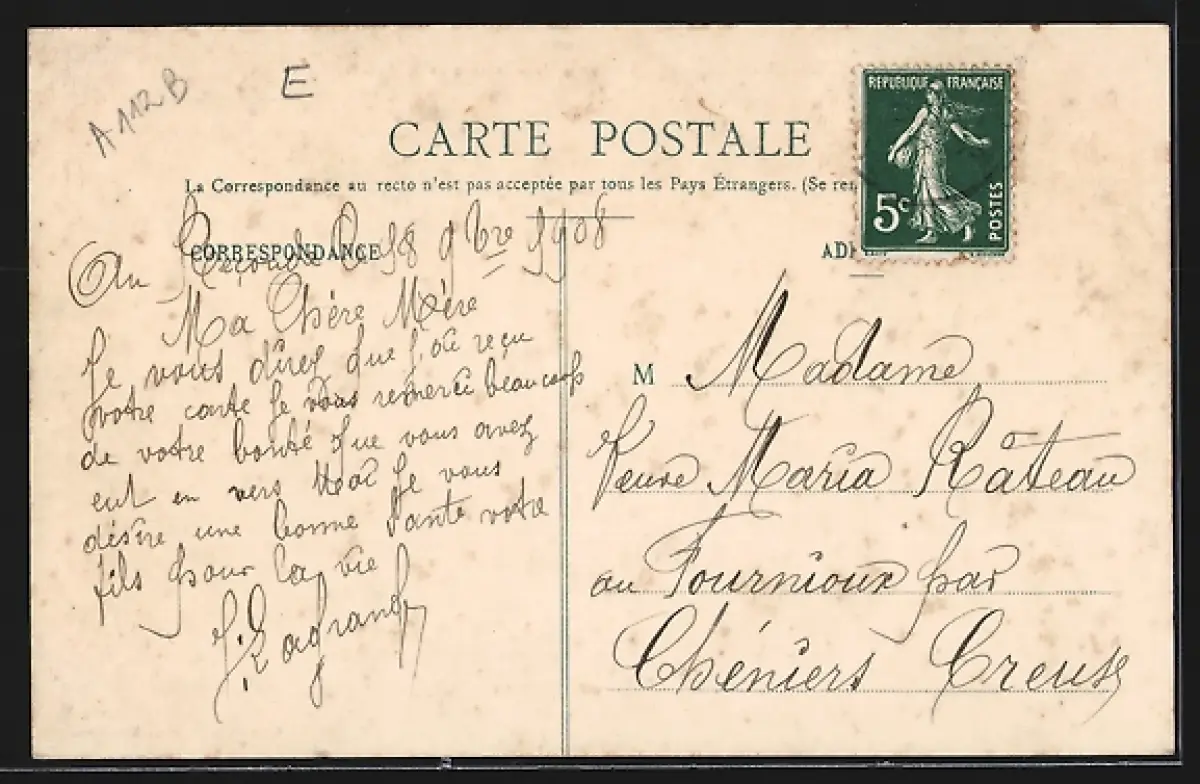 A 112 B
E
CARTE POSTALE
La Correspondance au recto n'est pas acceptée par tous les Pays Étrangers. (Se ren
CORRESPONDANCE
Au 18 9bre 1908
Ma Chère Mère
Je vous direz que j'ai reçu
votre carte je vous remercie beaucoup
de votre bonté que vous avez
eut en vers Moi Je vous
désire une bonne Santé votre
fils pour la vie
Lagrange
REPUBLIQUE FRANÇAISE
5c
POSTES
AD
M Madame
Veuve Maria Râteau
au Fournioux par
Chéniers Creuse